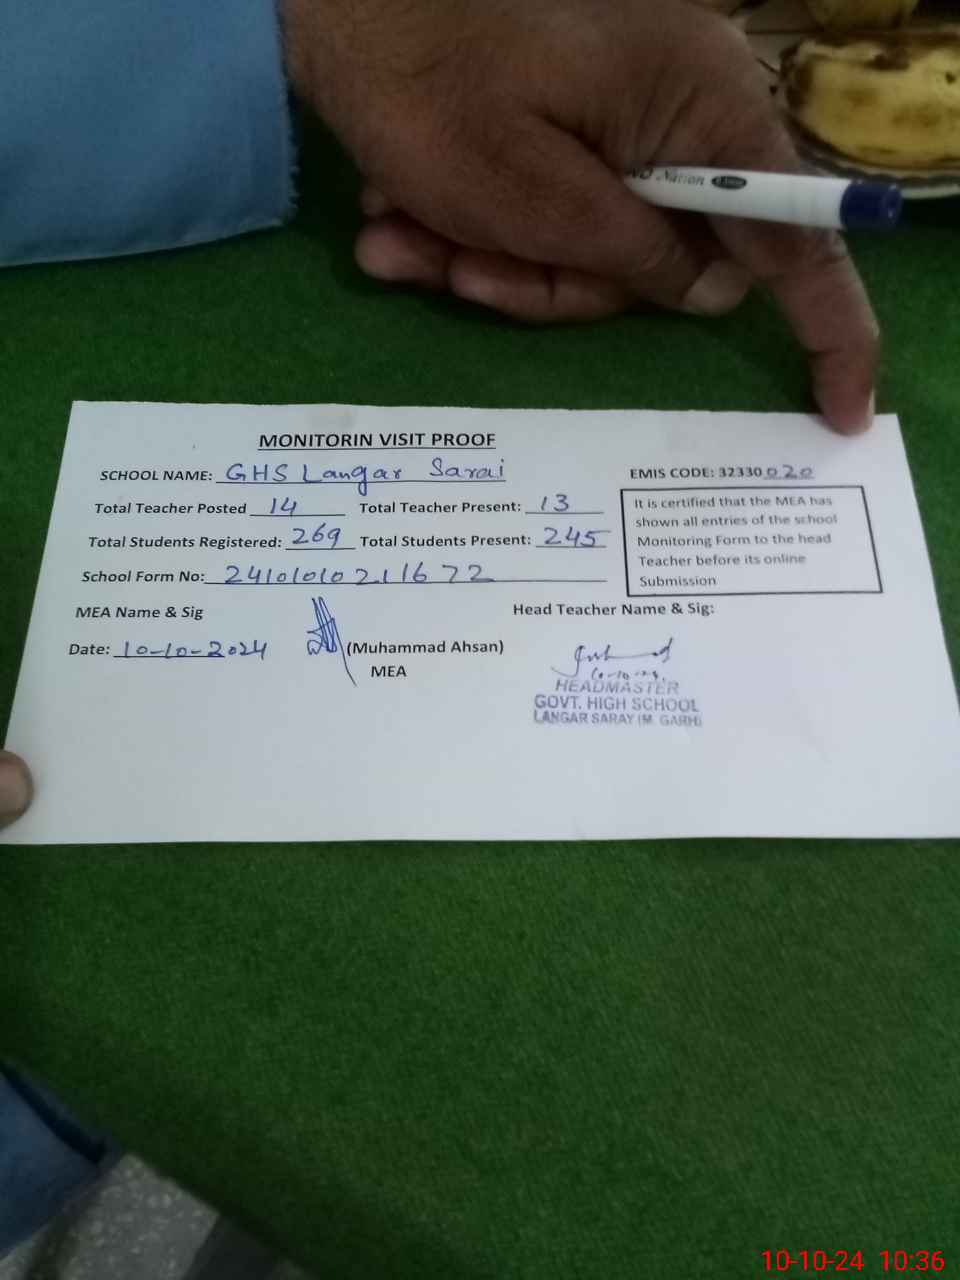 ND Nation
MONITORIN VISIT PROOF
SCHOOL NAME: GHS Langar Sarai
EMIS CODE: 32330020
Total Teacher Posted 14 Total Teacher Present: 13
Total Students Registered: 269 Total Students Present: 245
School Form No: 24101010211672
It is certified that the MEA has
shown all entries of the school
Monitoring Form to the head
Teacher before its online
Submission
MEA Name & Sig
Head Teacher Name & Sig:
Date: 10-10-2024
(Muhammad Ahsan)
MEA
10-10-24.
HEADMASTER
GOVT. HIGH SCHOOL
LANGAR SARAY (M. GARH)
10-10-24 10:36